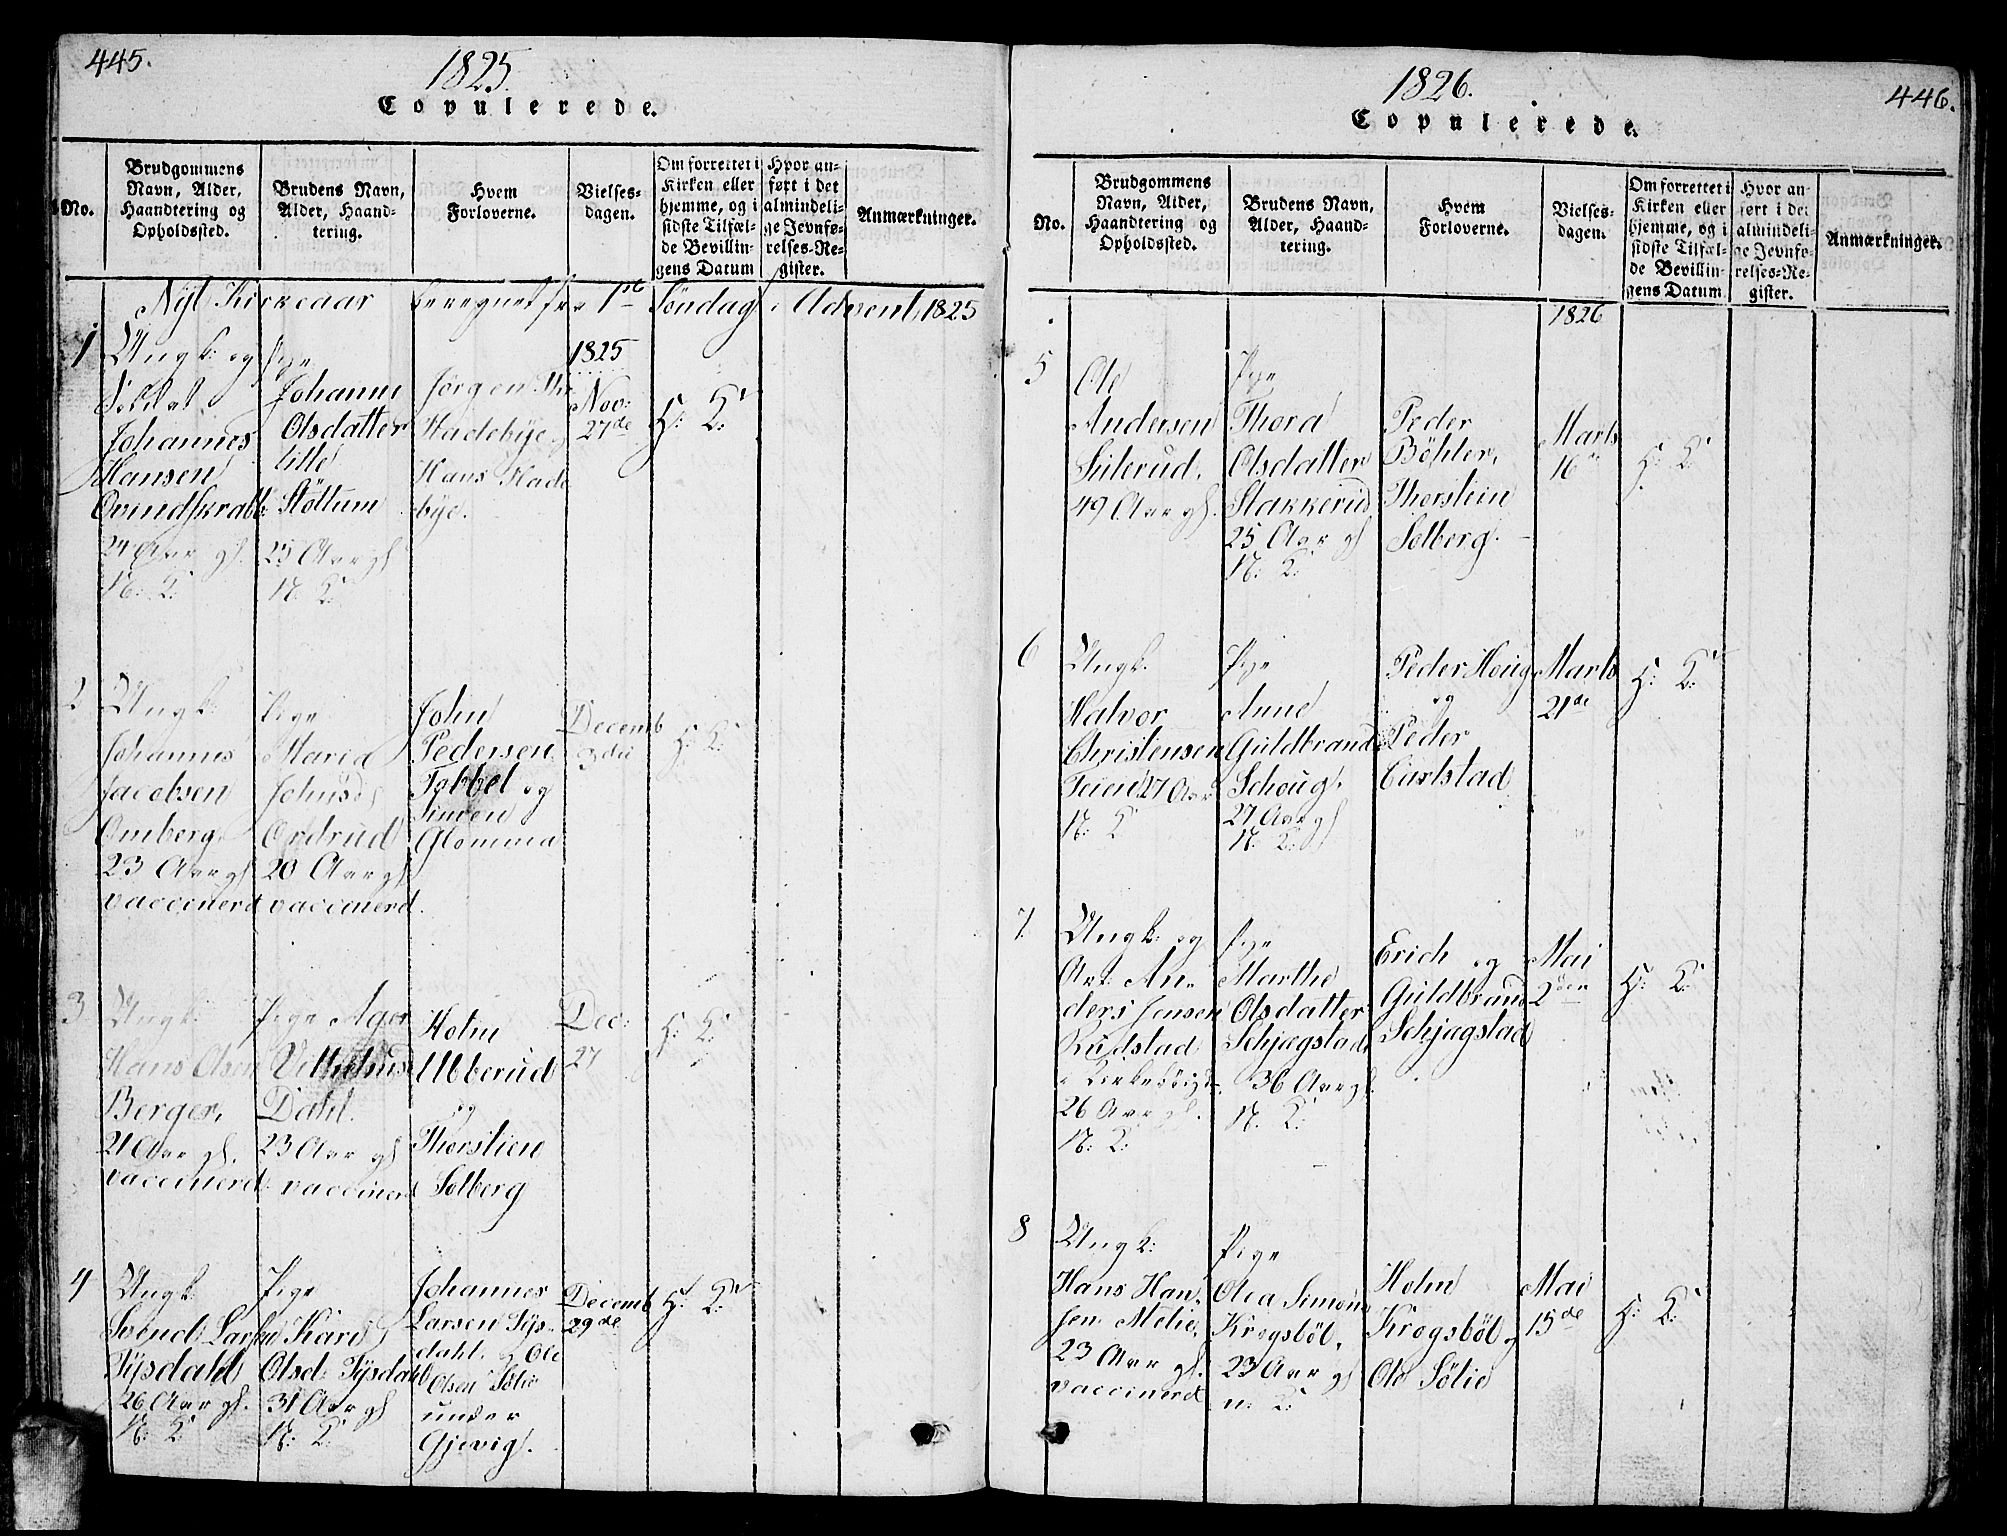 445.
1825.
Copulerede.
No.
Brudgommens Navn, Alder, Haandtering og Opholdssted.
Brudens Navn, Alder, Haandtering.
Hvem Forloverne.
Vielsesdagen.
Om forrettet i Kirken eller hjemme, og i sidste Tilfælde Bevillingens Datum
Hvor anført i det almindelige Jevnførelses-Register.
Anmærkninger.
Nyt Kirkeaar beregnet fra 1ste Søndag i Advent 1825
1
Ungk: og
Soldat
Johannes
Hansen
24 Aar gl.
N: K:
Pige
Johanne
Olsdatter
lille
Støttum
25 Aar gl
N: K:
Jørgen
Hadebye
Hans Hade
bye.
1825
Nov:
27de
H: K:
2
Ungk:
Johannes
Jacobsen
Omberg
23 Aar gl
vaccinerd
Pige
Maria
Johnsd
Ordrud
20 Aar gl
vaccinerd.
John
Pedersen
Tobbel og
Simen
Glomma
Decemb
3die
H: K:
3
Ungk:
Hans Olsen
Berger,
21 Aar gl.
vaccinerd
Pige Ager
Vilhelms
Dahl.
23 Aar gl
vaccinerd
Holm
Ulberud
og
Thorstien
Solberg
Dec:
27
H: K:
4
Ungk:
Svend Larsen
Tÿsdahl
26 Aar gl.
N: K:
Pige
Kari
Olsd: Tÿsdahl
31 Aar gl
N: K:
Johannes
Larsen Tÿs-
dahl. og Ole
Olsen Sølie
under
Gjevig.
Decemb
29de
H: K:
1826.
446.
Copulerede.
No.
Brudgommens Navn, Alder, Haandtering og Opholdssted.
Brudens Navn, Alder, Haandtering.
Hvem Forloverne.
Vielsesdagen.
Om forrettet i Kirken eller hjemme, og i sidste Tilfælde Bevillingens Datum
Hvor anført i det almindelige Jevnførelses-Register.
Anmærkninger.
1826
5
Ole
Andersen
Sülerud.
49 Aar gl.
Pige
Thora
Olsdatter
Stakkerud
25 Aar gl
N: K:
Peder
Böhler,
Thorstien
Solberg.
Marts
16
H: K:
6
Ungk.
Halvor
Christensen
Teien 27 Aar
N: K
Pige
Anne
Guldbrand
Schoug.
27 Aar gl
N: K:
Peder Houg
og
Peder
Carlstad
Marts
21de
H: K:
7.
Ungk: og
Art: An-
ders Jensen
Rudstad
26 Aar gl.
N: K:
Pige
Marthe
Olsdatter
Schjægstad
36 Aar gl.
N: K:
Erich og
Guldbrand
Schjagstad
Mai
2den
H: K:
8
Ungk:
Hans Han-
sen Melie
23 Aar gl.
vaccinerd
Pige
Olea Simons
Krogsböl.
23 Aar gl
n: K:
Holm
Krogsböl og
Ole Sølie
Mai
15de
H: K: